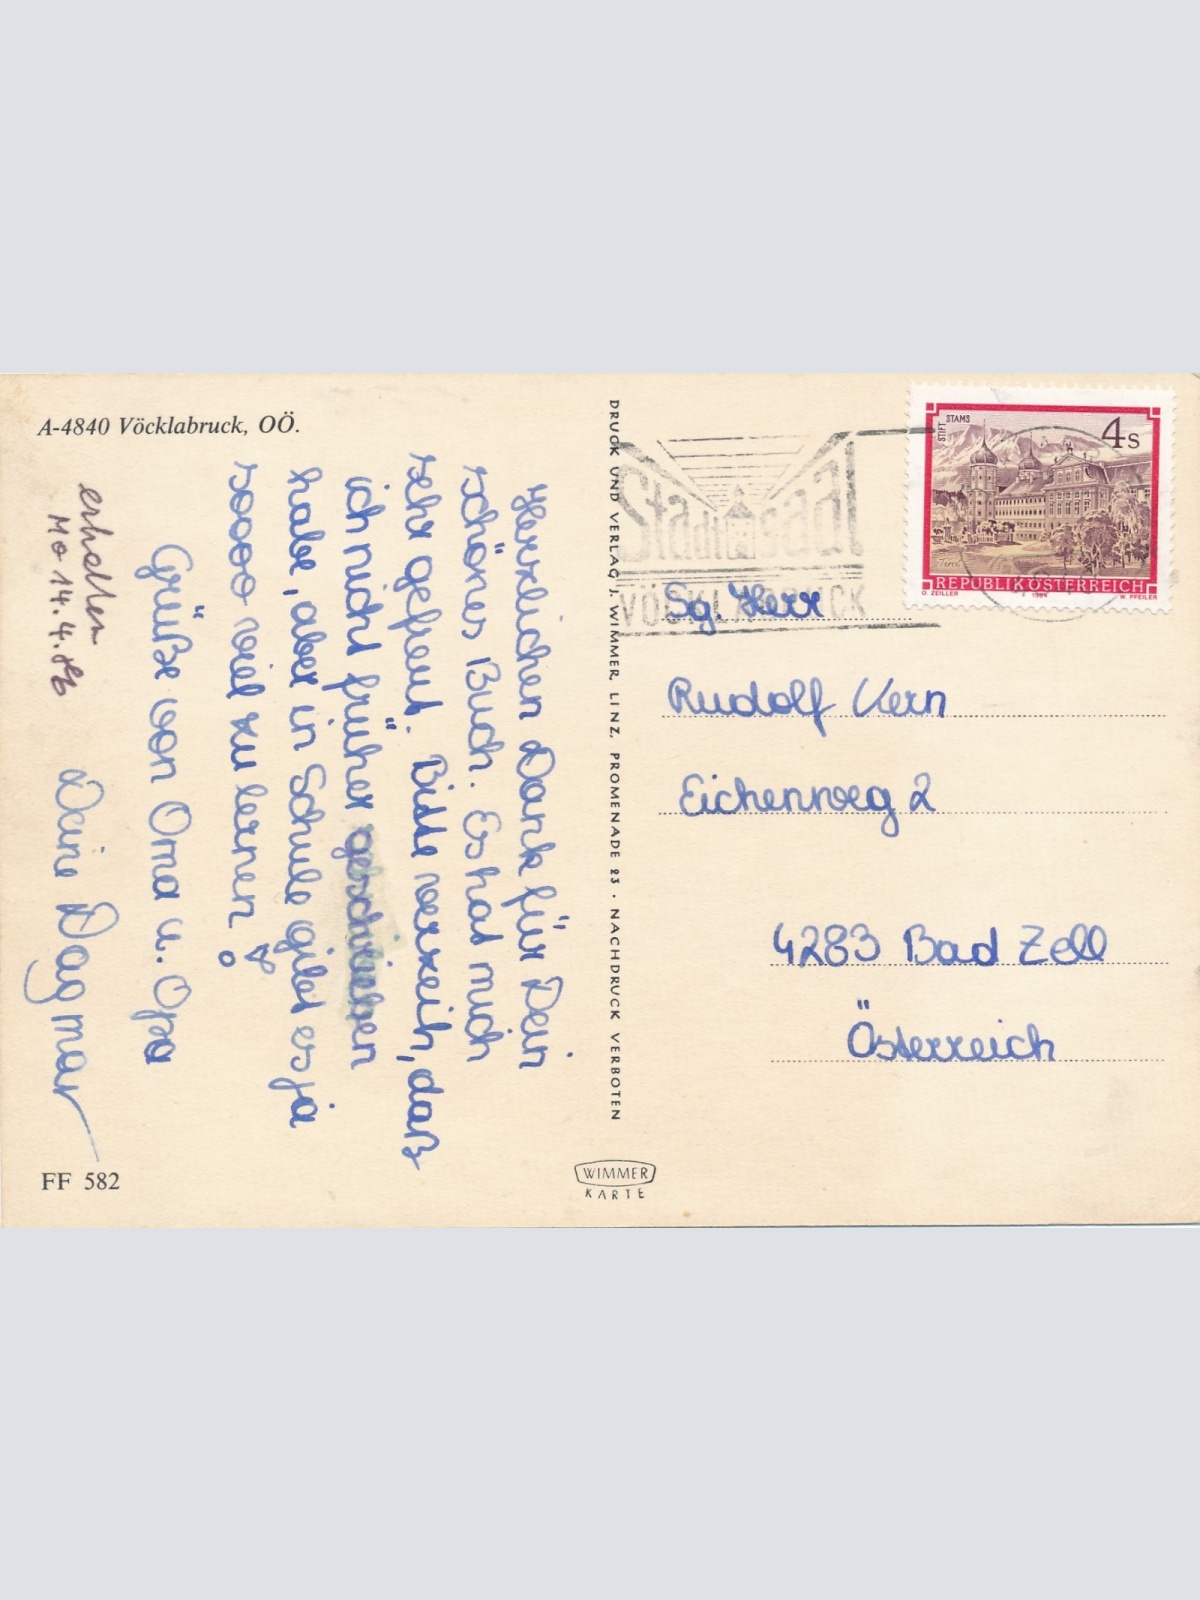 A-4840 Vöcklabruck, OÖ.
Herzlichen Dank für Dein
schönes Buch. Es hat mich
sehr gefreut. Bitte verzeih, daß
ich nicht früher geschrieben
habe, aber in Schule gibt es ja
soooo viel zu lernen!
Grüße von Oma u. Opa
Deine Dagmar
erhalten
Mo 14.4.86
FF 582
DRUCK UND VERLAG J. WIMMER, LINZ, PROMENADE 23 · NACHDRUCK VERBOTEN
WIMMER
KARTE
Stadtsaal
VÖCKLABRUCK
STIFT STAMS
4 S
Tirol
REPUBLIK ÖSTERREICH
O. ZEILLER 1984 W. PFEILER
Sg. Herr
Rudolf Kern
Eichenweg 2
4283 Bad Zell
Österreich